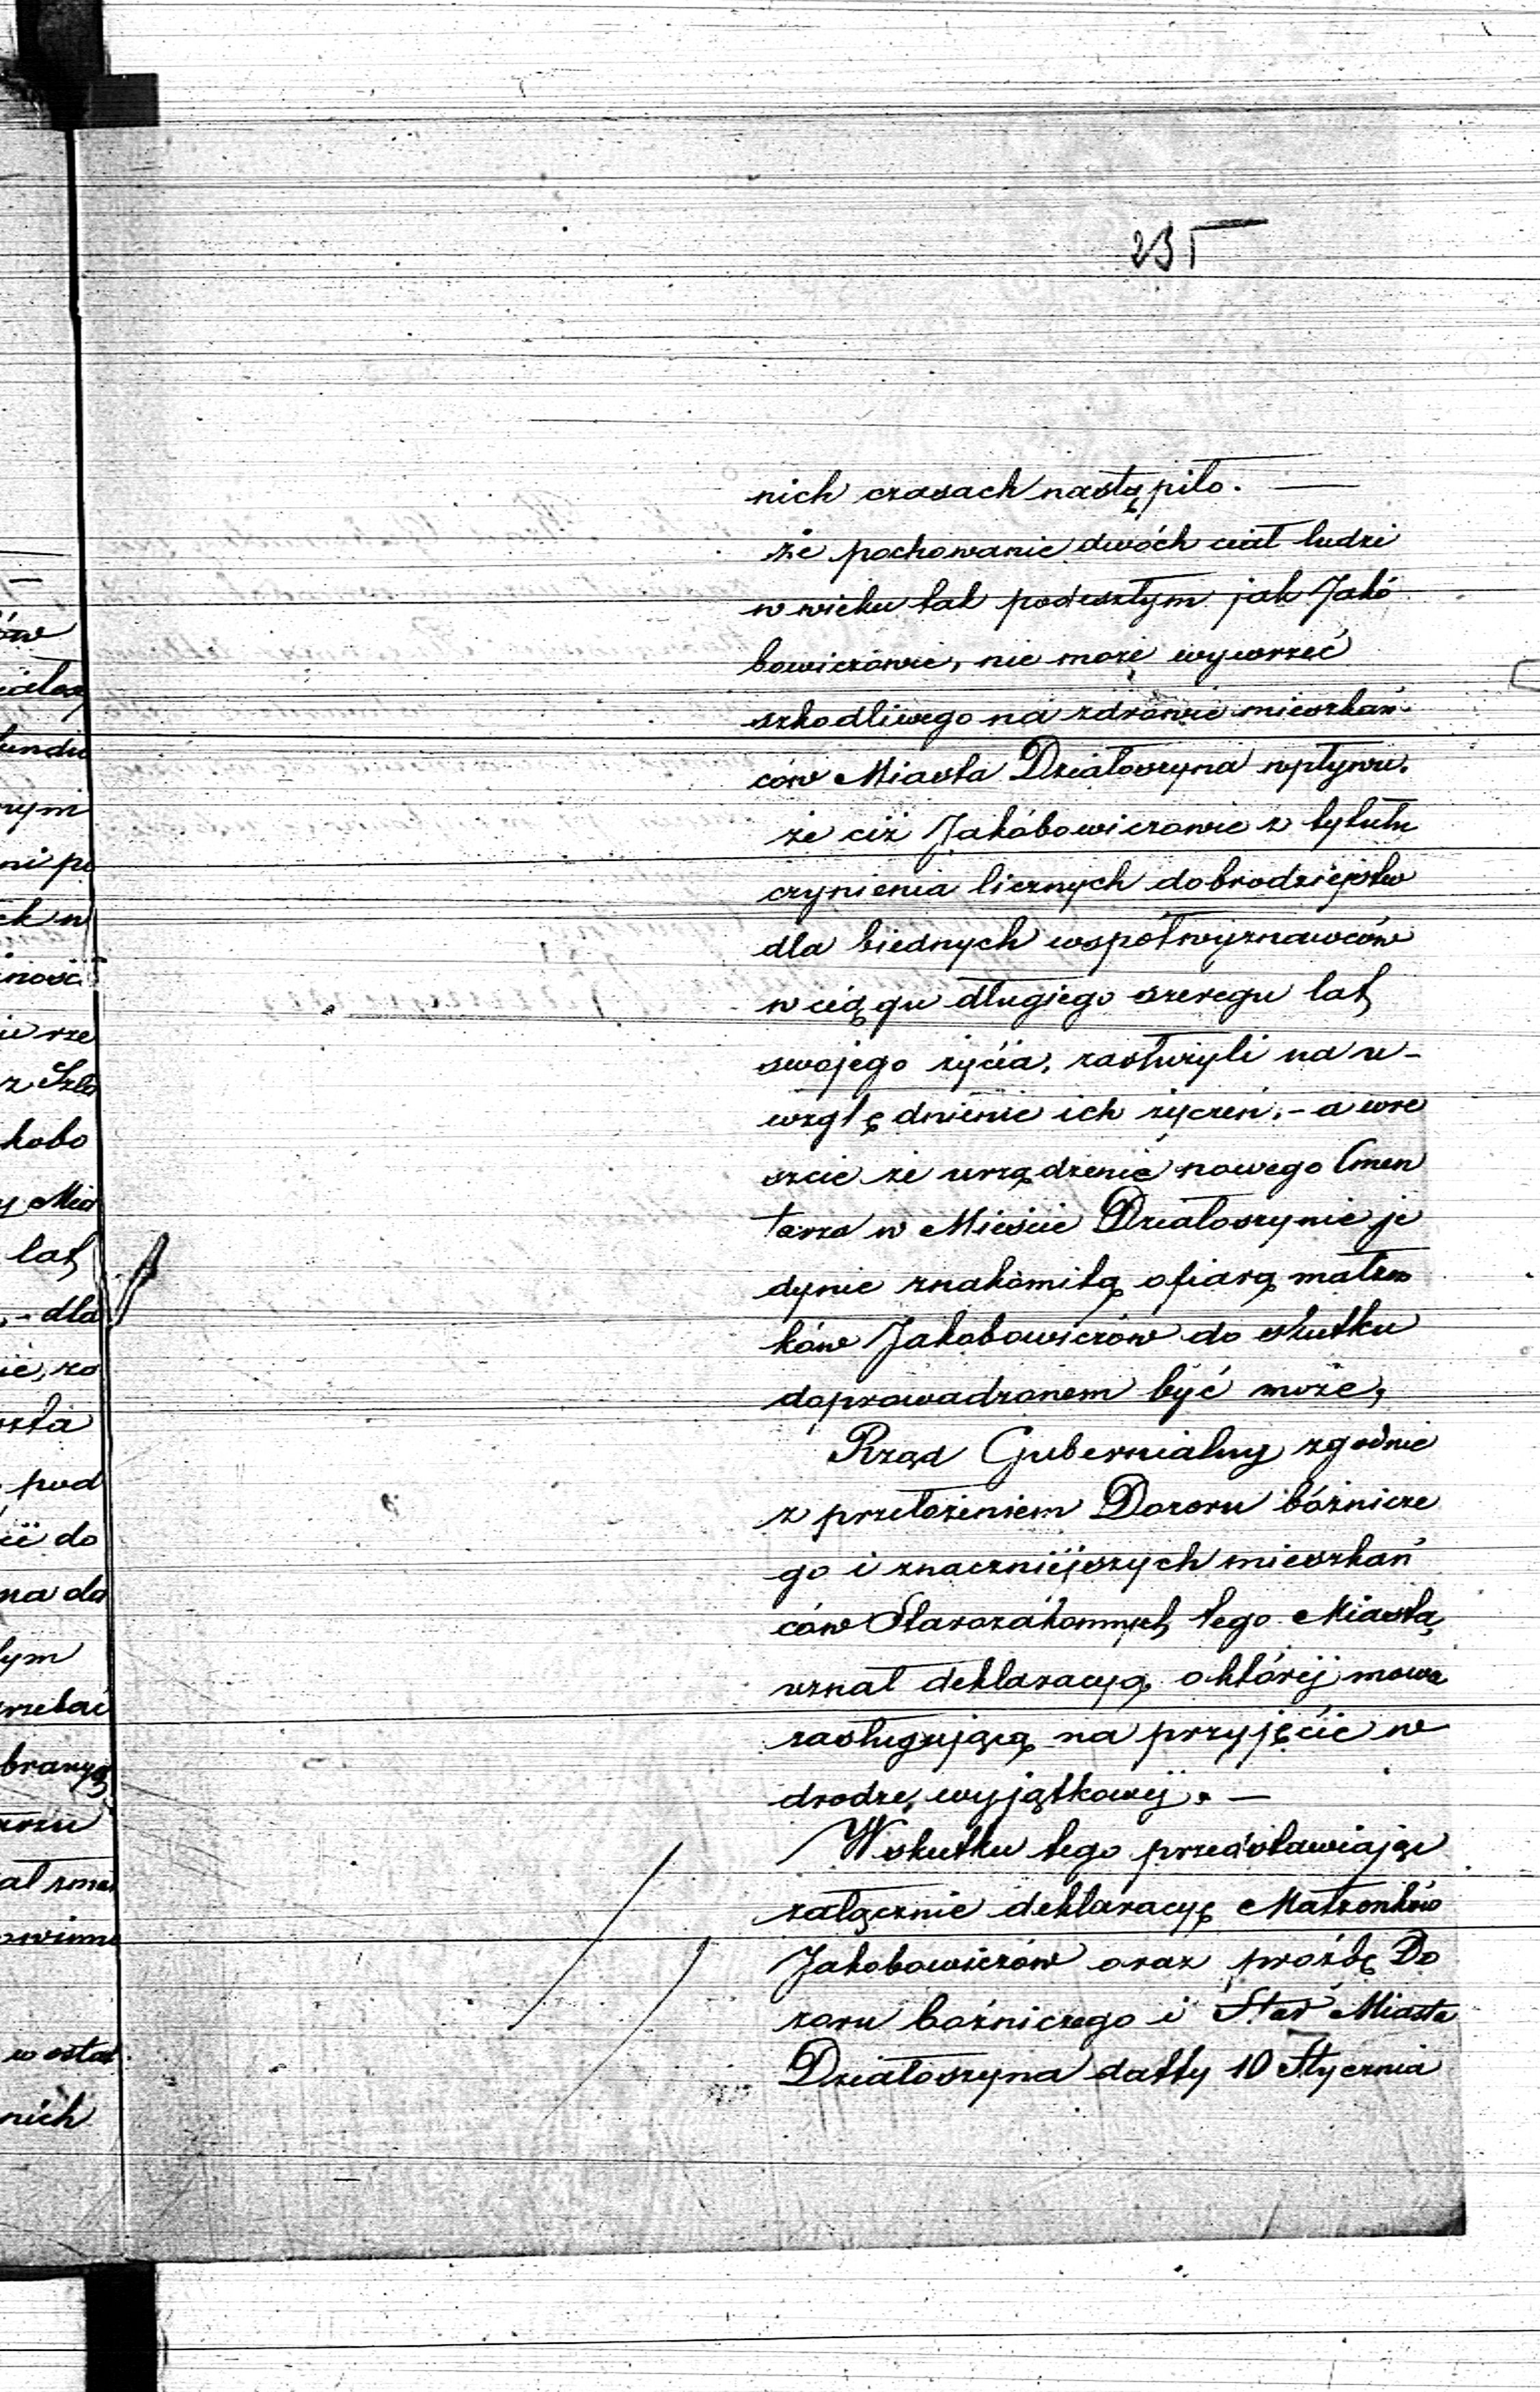 235
nich czasach nastąpiło. —
że pochowanie dwóch ciał ludzi
w wieku tak podeszłym jak Jakó
bowiczowie, nie może wywrzeć
szkodliwego na zdrowie mieszkań-
ców Miasta Działoszyna wpływu.
że ciż Jakóbowiczowie z tytułu
czynienia licznych dobrodziejstw
dla biednych współwyznawców
w ciągu długiego szeregu lat
swojego życia, zasłużyli na u-
względnienie ich życzeń, – a wre
szcie że urządzenie nowego Cmen
tarza w Mieście Działoszynie je
dynie znakomitą ofiarą małżon
ków Jakobowiczów do skutku
doprowadzonem być może,
Rząd Gubernialny zgodnie
z przełożeniem Dozoru bóżnicze
go i znaczniejszych mieszkań
ców Starozakonnych tego Miasta,
uznał deklaracyą o którėj mowa
zasługującą na przyjęcie w
drodze wyjątkowėj. —
W skutku tego przedstawiając
załącznie deklaracyę Małżonków
Jakobowiczów oraz proźbę Do
zoru bożniczego i Star Miasta
Działoszyna datty 10 Stycznia
ów
rym
ni po
ek w
z Szlo
kobo
y Mia
lat
, – dla
pod
do
na do
tym
w ostat
nich